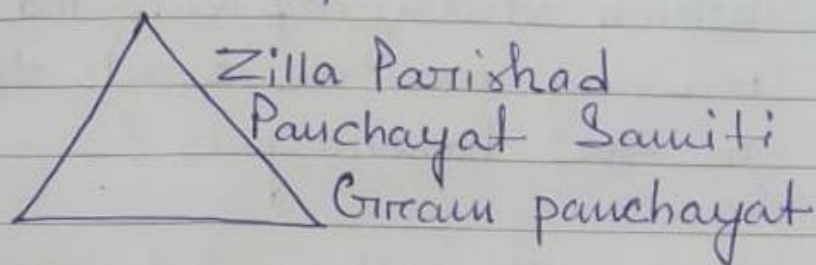 Zilla Parishad
Panchayat Samiti
Gram panchayat